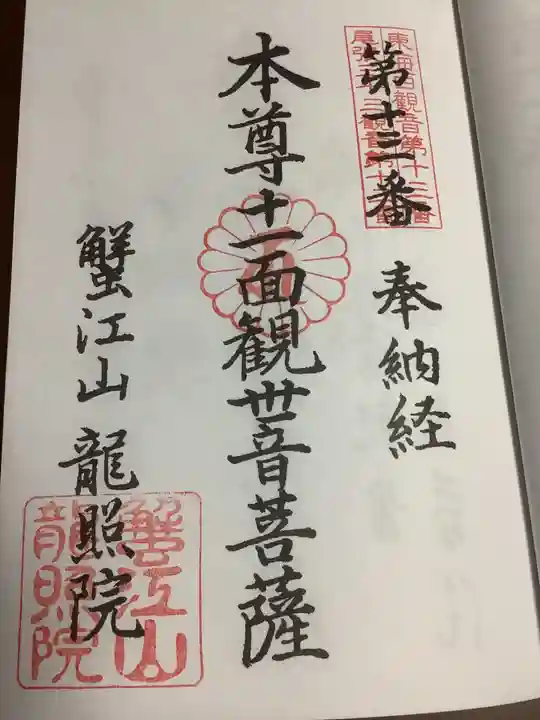 第十三番
奉納経
東海白寿観音第十三番
本尊十一面観世音菩薩
蟹江山 龍照院
蟹江山
龍照院